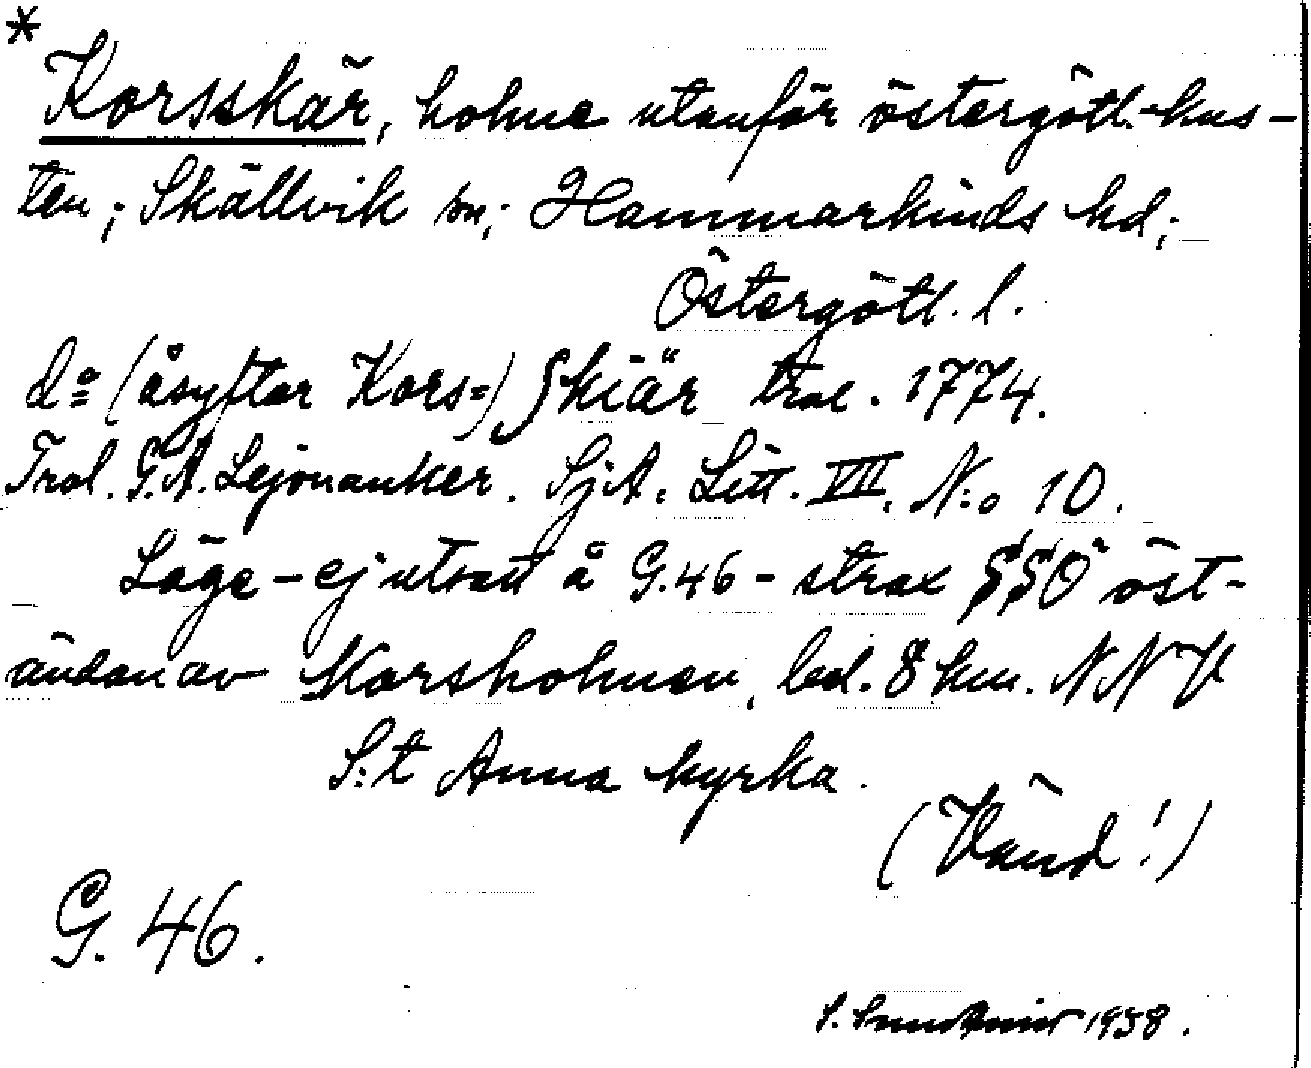 *
Korsskär, holme utanför östergötl.-kus-
ten; Skällvik sn; Hammarkinds hd;
Östergötl. l.
do (åsyftar Kors=) Skiär trol. 1774.
Trol. G.A. Lejonanker. SjA. Litt. VIII. N:o 10.
Läge – ej utsatt å G.46 – strax SSO öst-
ändan av Korsholmen, bel. 8 km. NNV
S:t Anna kyrka.
(Vänd!)
G. 46.
S. 1938.